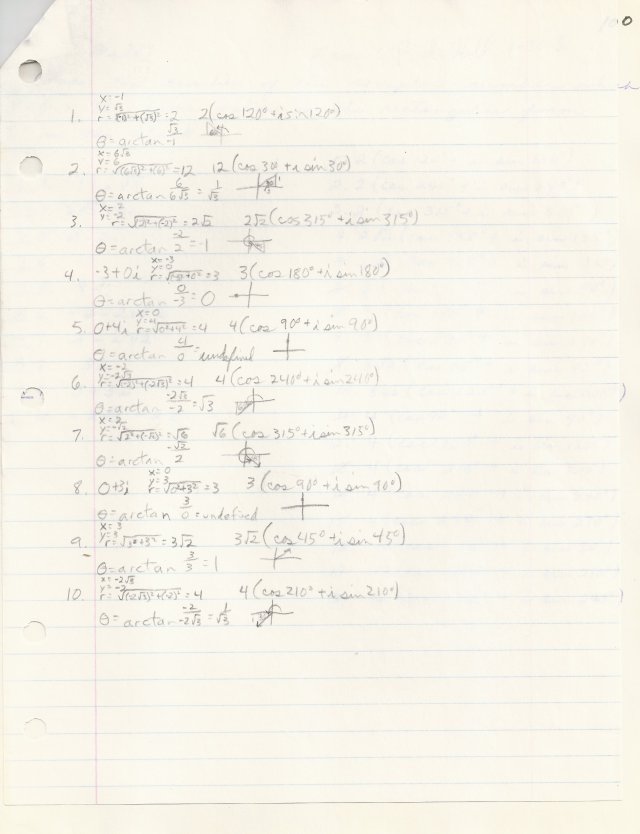 100
x = -1
y = √3
1. r = √(-1)² + (√3)² = 2 2(cos 120° + i sin 120°)
θ = arctan √3/-1
x = 6√3
y = 6
2. r = √(6√3)² + (6)² = 12 12(cos 30° + i sin 30°)
θ = arctan 6/6√3 = 1/√3
x = 2
y = -2
3. r = √(2)² + (-2)² = 2√2 2√2(cos 315° + i sin 315°)
θ = arctan -2/2 = -1
x = -3
y = 0
4. -3 + 0i r = √(-3)² + 0² = 3 3(cos 180° + i sin 180°)
θ = arctan 0/-3 = 0
x = 0
y = 4
5. 0 + 4i r = √0² + 4² = 4 4(cos 90° + i sin 90°)
θ = arctan 4/0 = undefined
x = -2
y = -2√3
6. r = √(-2)² + (-2√3)² = 4 4(cos 240° + i sin 240°)
θ = arctan -2√3/-2 = √3
x = 2
y = -√2
7. r = √2² + (-√2)² = √6 √6(cos 315° + i sin 315°)
θ = arctan -√2/2
x = 0
y = 3
8. 0 + 3i r = √0² + 3² = 3 3(cos 90° + i sin 90°)
θ = arctan 3/0 = undefined
x = 3
y = 3
9. r = √3² + 3² = 3√2 3√2(cos 45° + i sin 45°)
θ = arctan 3/3 = 1
x = -2√3
y = -2
10. r = √(-2√3)² + (-2)² = 4 4(cos 210° + i sin 210°)
θ = arctan -2/-2√3 = 1/√3